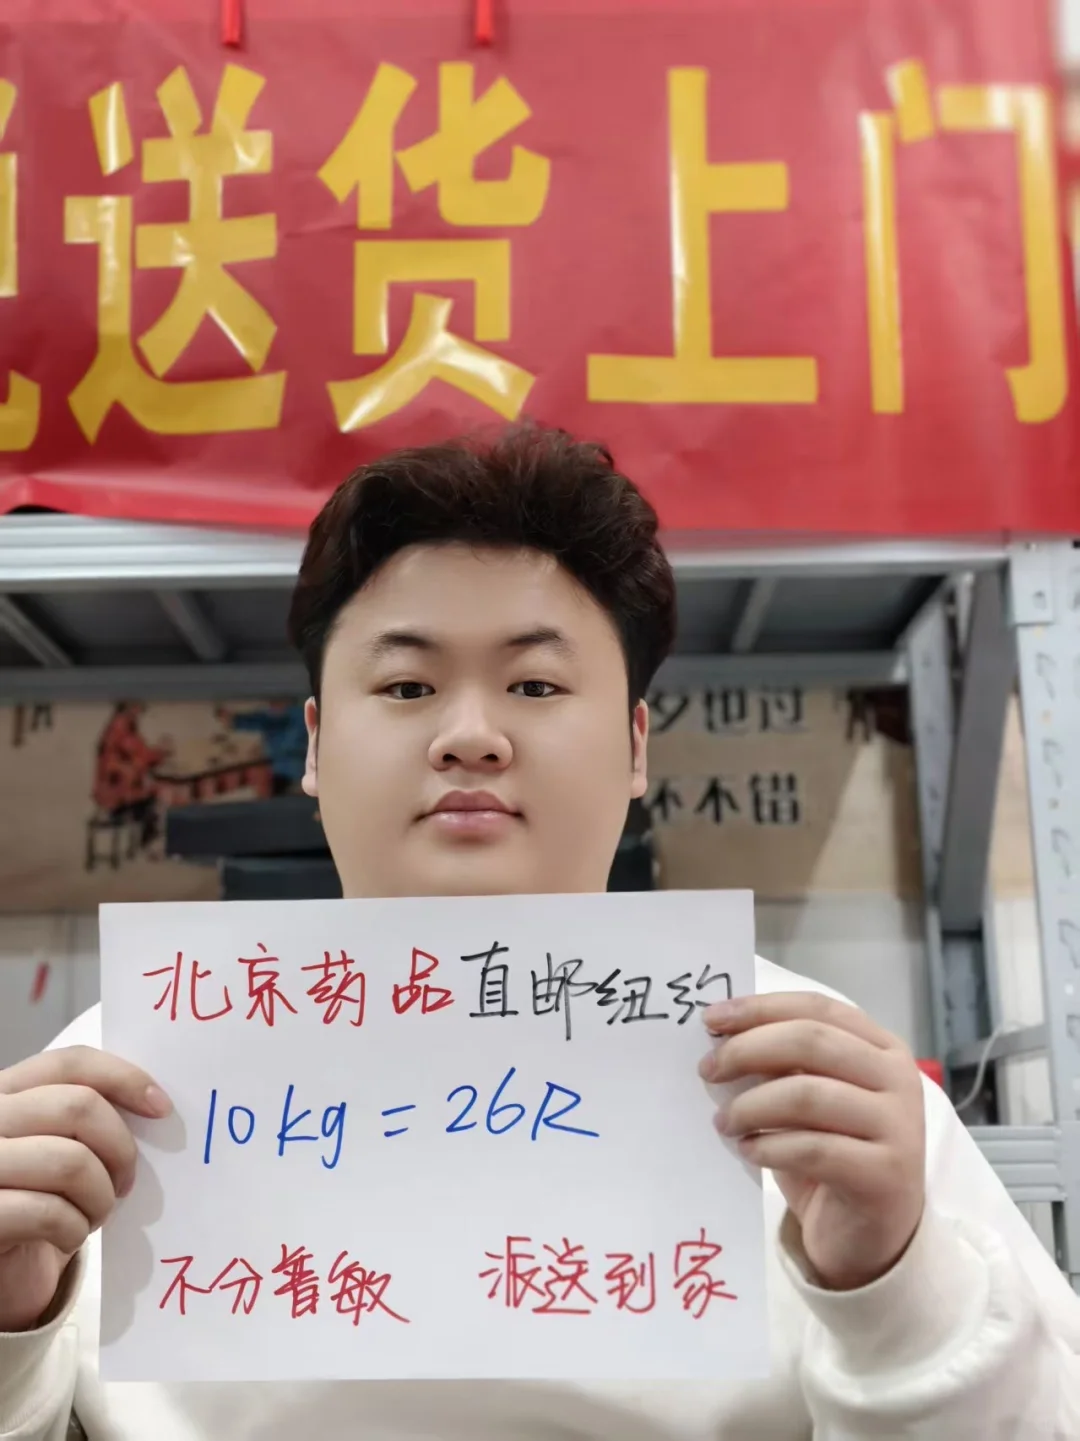 送货上门
岁也过
不不错
北京药品直邮纽约
10kg=26R
不分普敏 派送到家